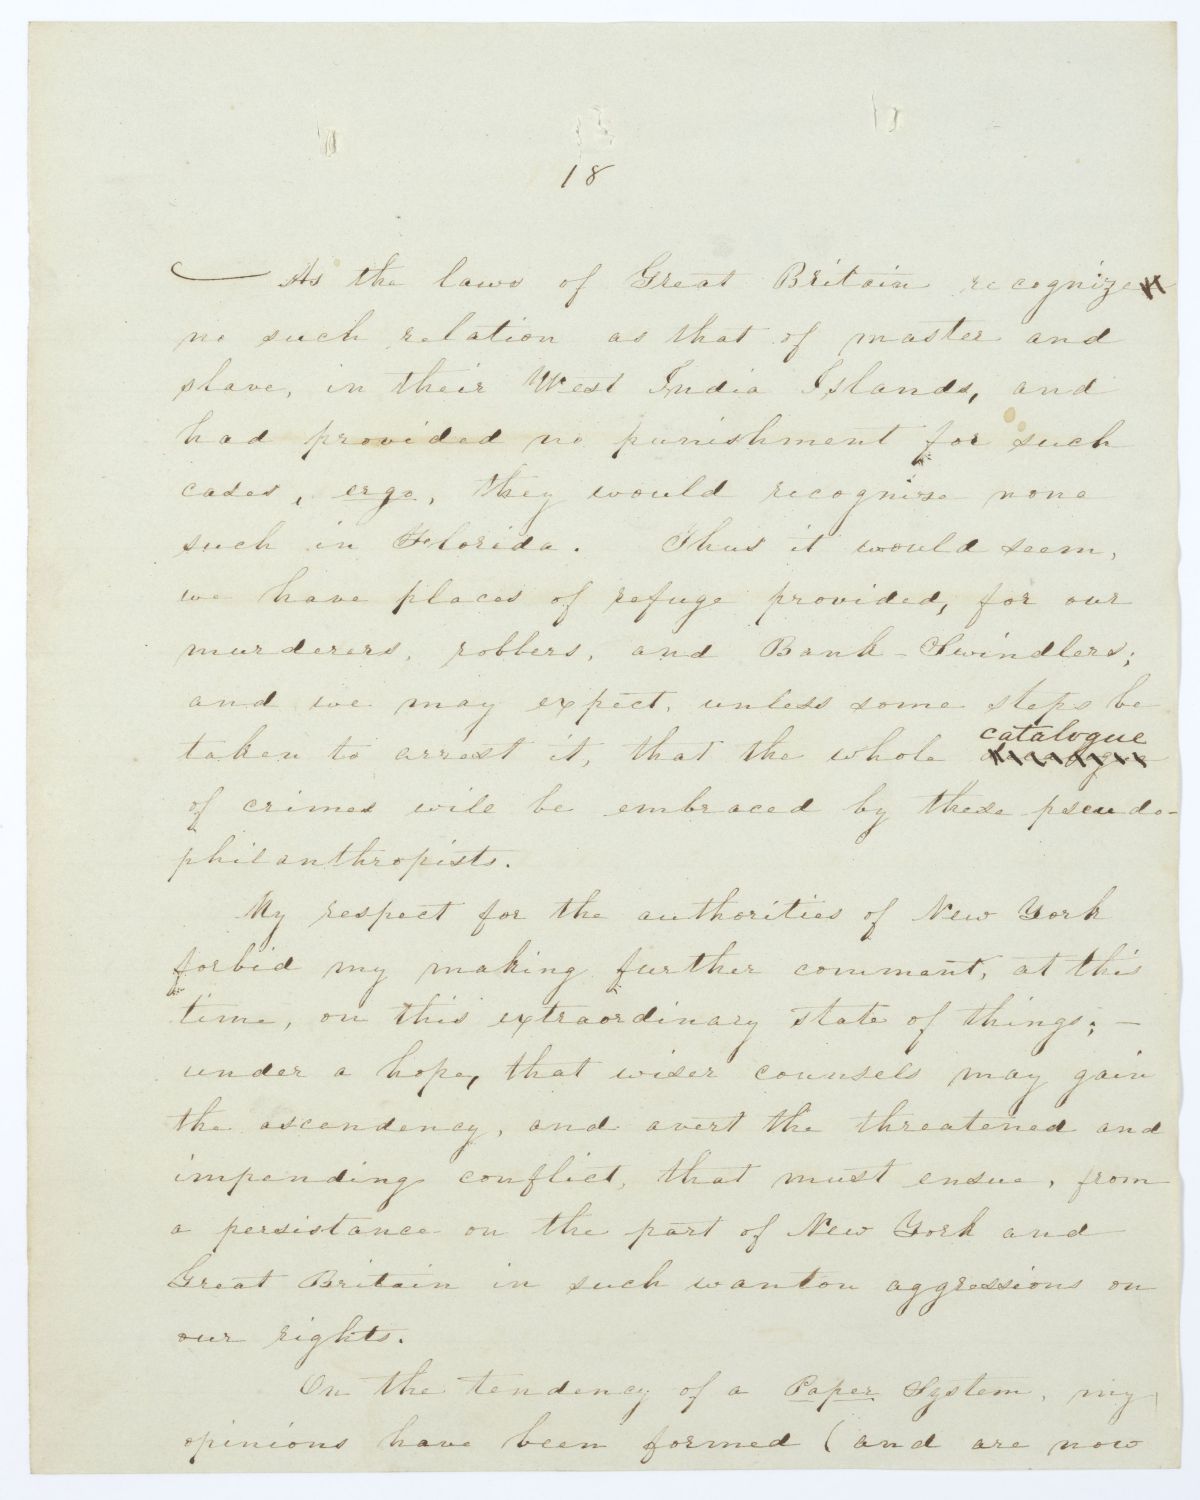 18
As the laws of Great Britain recognize
no such relation as that of master and
slave, in their West India Islands, and
had provided no punishment for such
cases, ergo, they would recognise none
such in Florida. Thus it would seem,
we have places of refuge provided, for our
murderers, robbers, and Bank-Swindlers;
and we may expect, unless some steps be
taken to arrest it, that the whole catalogue
of crimes will be embraced by these pseudo-
philanthropists.
My respect for the authorities of New York
forbid my making further comment, at this
time, on this extraordinary state of things; —
under a hope, that wiser counsels may gain
the ascendency, and avert the threatened and
impending conflict, that must ensue, from
a persistance on the part of New York and
Great Britain in such wanton aggressions on
our rights.
On the tendency of a Paper System, my
opinions have been formed (and are now